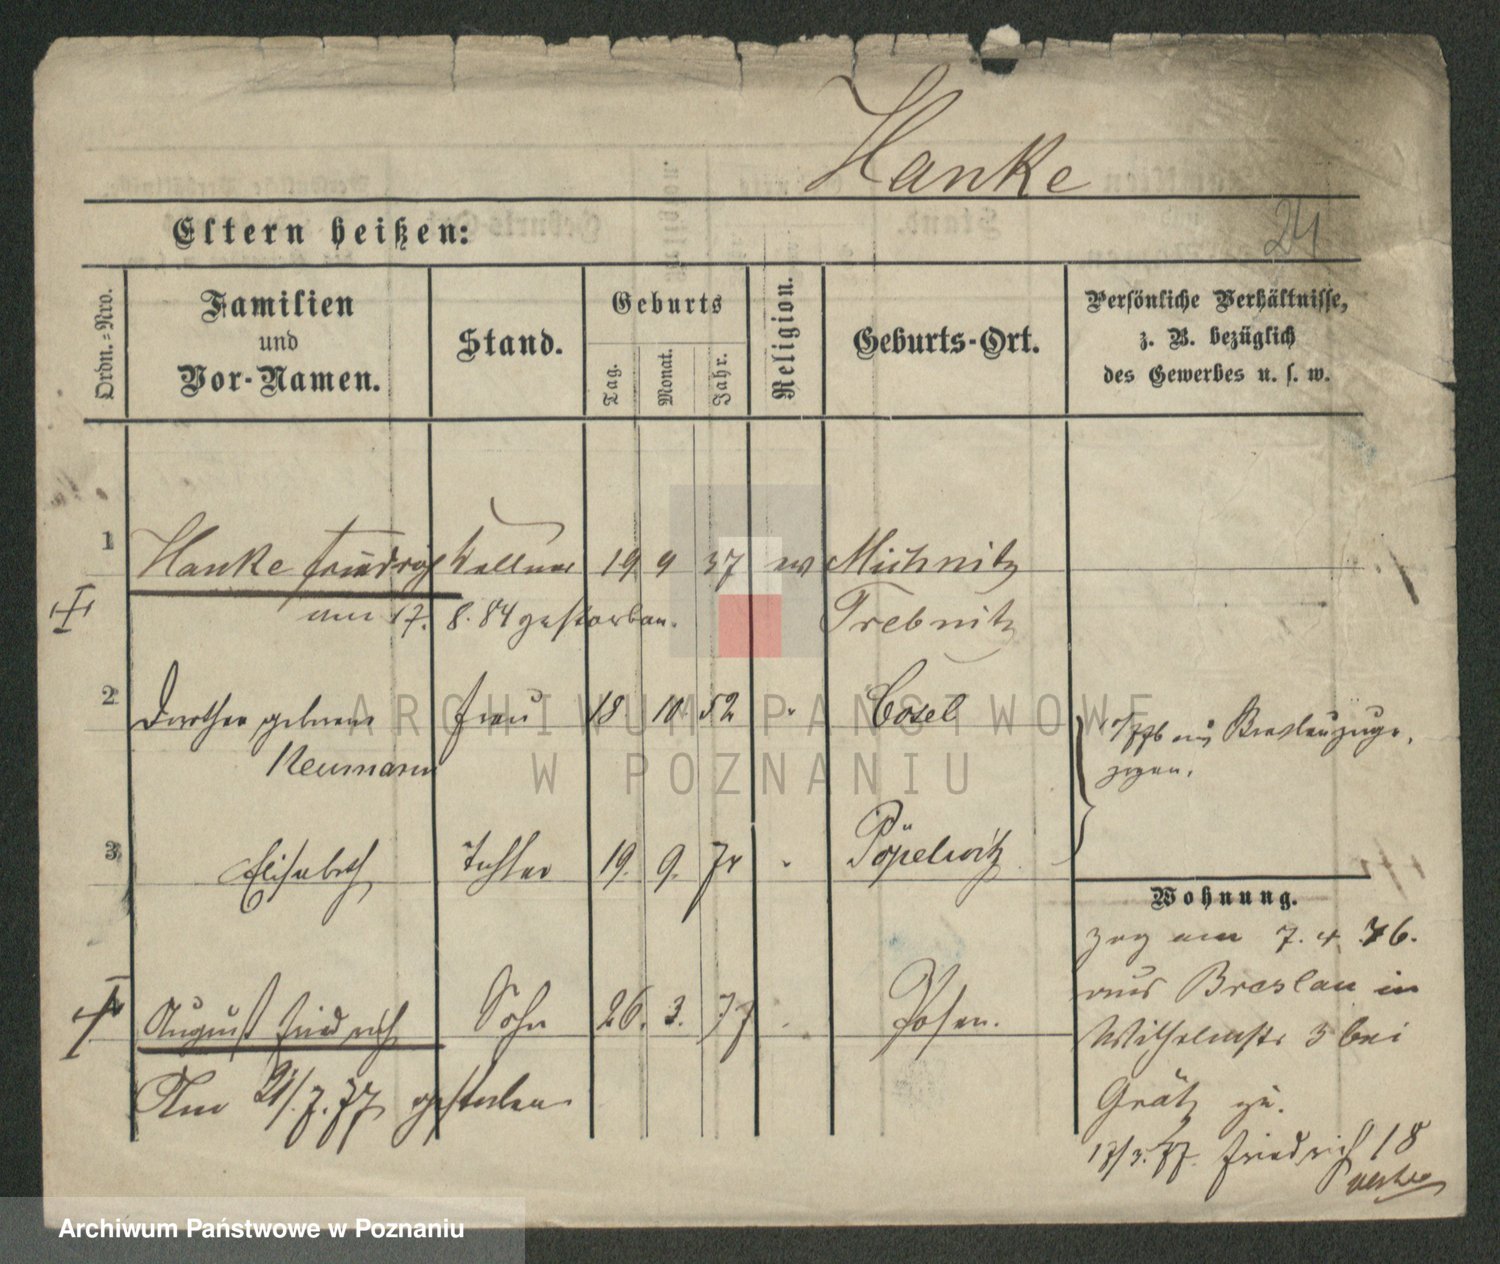 Hanke
24
Eltern heißen:
Ordn.=Nro.
Familien
und
Vor-Namen.
Stand.
Geburts
Tag.
Monat.
Jahr.
Religion.
Geburts-Ort.
Persönliche Verhältnisse,
z. B. bezüglich
des Gewerbes u. s. w.
1 Hanke Friedrich Kellner 19 9 37 ev Michnitz
am 17. 8. 84 gestorben. Trebnitz
2 Dorothea geborene Frau 18 10 52 " Cosel
Neumann
aus Breslau zuge-
zogen.
3 Elisabeth Tochter 19. 9. " Pöpelwitz
Wohnung.
zog am 7. 4. 76.
aus Breslau in
Wilhelmstr 3 bei
Grätz zu.
August Friedrich Sohn 26. 3. 77 " Posen.
Am 21/7.77 gestorben
13/3.77. Friedrich 18
ARCHIWUM PAŃSTWOWE
W POZNANIU
Archiwum Państwowe w Poznaniu